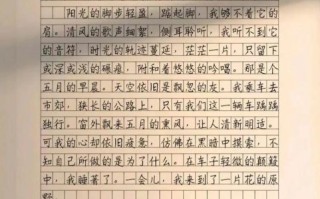 阳光的脚步轻盈，踮起脚，我够不着它的
肩。清风的歌声细腻，侧耳聆听，我听不到它
的音符，时光的轨迹蔓延，茫茫一片，只留下
或深或浅的碾痕，附和着悠悠的吟嘎。那是个
五月的早晨。天空依旧是飘忽的灰。我乘车去
市郊。狭长的公路上，只有我们这一辆车踽踽
独行。窗外飘来五月的熏风，让人清新明造。
可我的心却依旧疲惫，仿佛在黑暗中摸索，不
知自己所做的是为了什么。在车子轻微的颠簸
中，我睡着了。一会儿，我来到了一片花的原
野